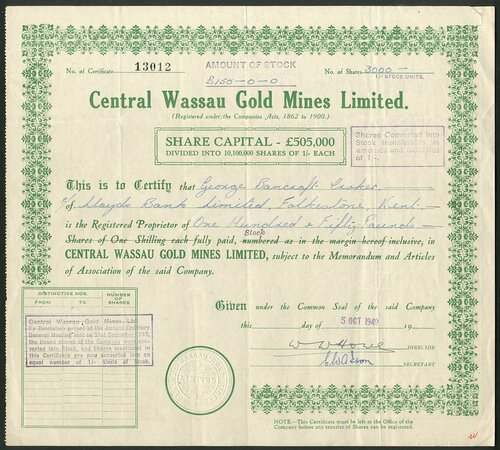 No. of Certificate 13012
AMOUNT OF STOCK
£150-0-0
No. of Shares 3000
1/- STOCK UNITS.
Central Wassau Gold Mines Limited.
(Registered under the Companies Acts, 1862 to 1900.)
SHARE CAPITAL - £505,000
DIVIDED INTO 10,100,000 SHARES OF 1/- EACH
Shares Converted into
Stock transferable in
amounts and multiples
of 1/-.
This is to Certify that George Bancroft Croker
c/o Lloyds Bank Limited, Folkestone, Kent.
is the Registered Proprietor of One Hundred & Fifty Pounds
Stock
Shares of One Shilling each fully paid, numbered as in the margin hereof inclusive, in
CENTRAL WASSAU GOLD MINES LIMITED, subject to the Memorandum and Articles
of Association of the said Company.
DISTINCTIVE NOS.
FROM TO
NUMBER OF SHARES
Central Wassau Gold Mines Ltd.
By Resolution passed at the Annual Ordinary
General Meeting held on 31st December
the issued shares of the Company were con-
verted into Stock, and Shares mentioned in
this Certificate are now converted into an
equal number of 1/- Units of Stock.
Given under the Common Seal of the said Company
this day of 5 OCT 1949 19
W W Howe
DIRECTOR
SECRETARY
NOTE.—This Certificate must be left at the Office of the
Company before any transfer of Shares can be registered.